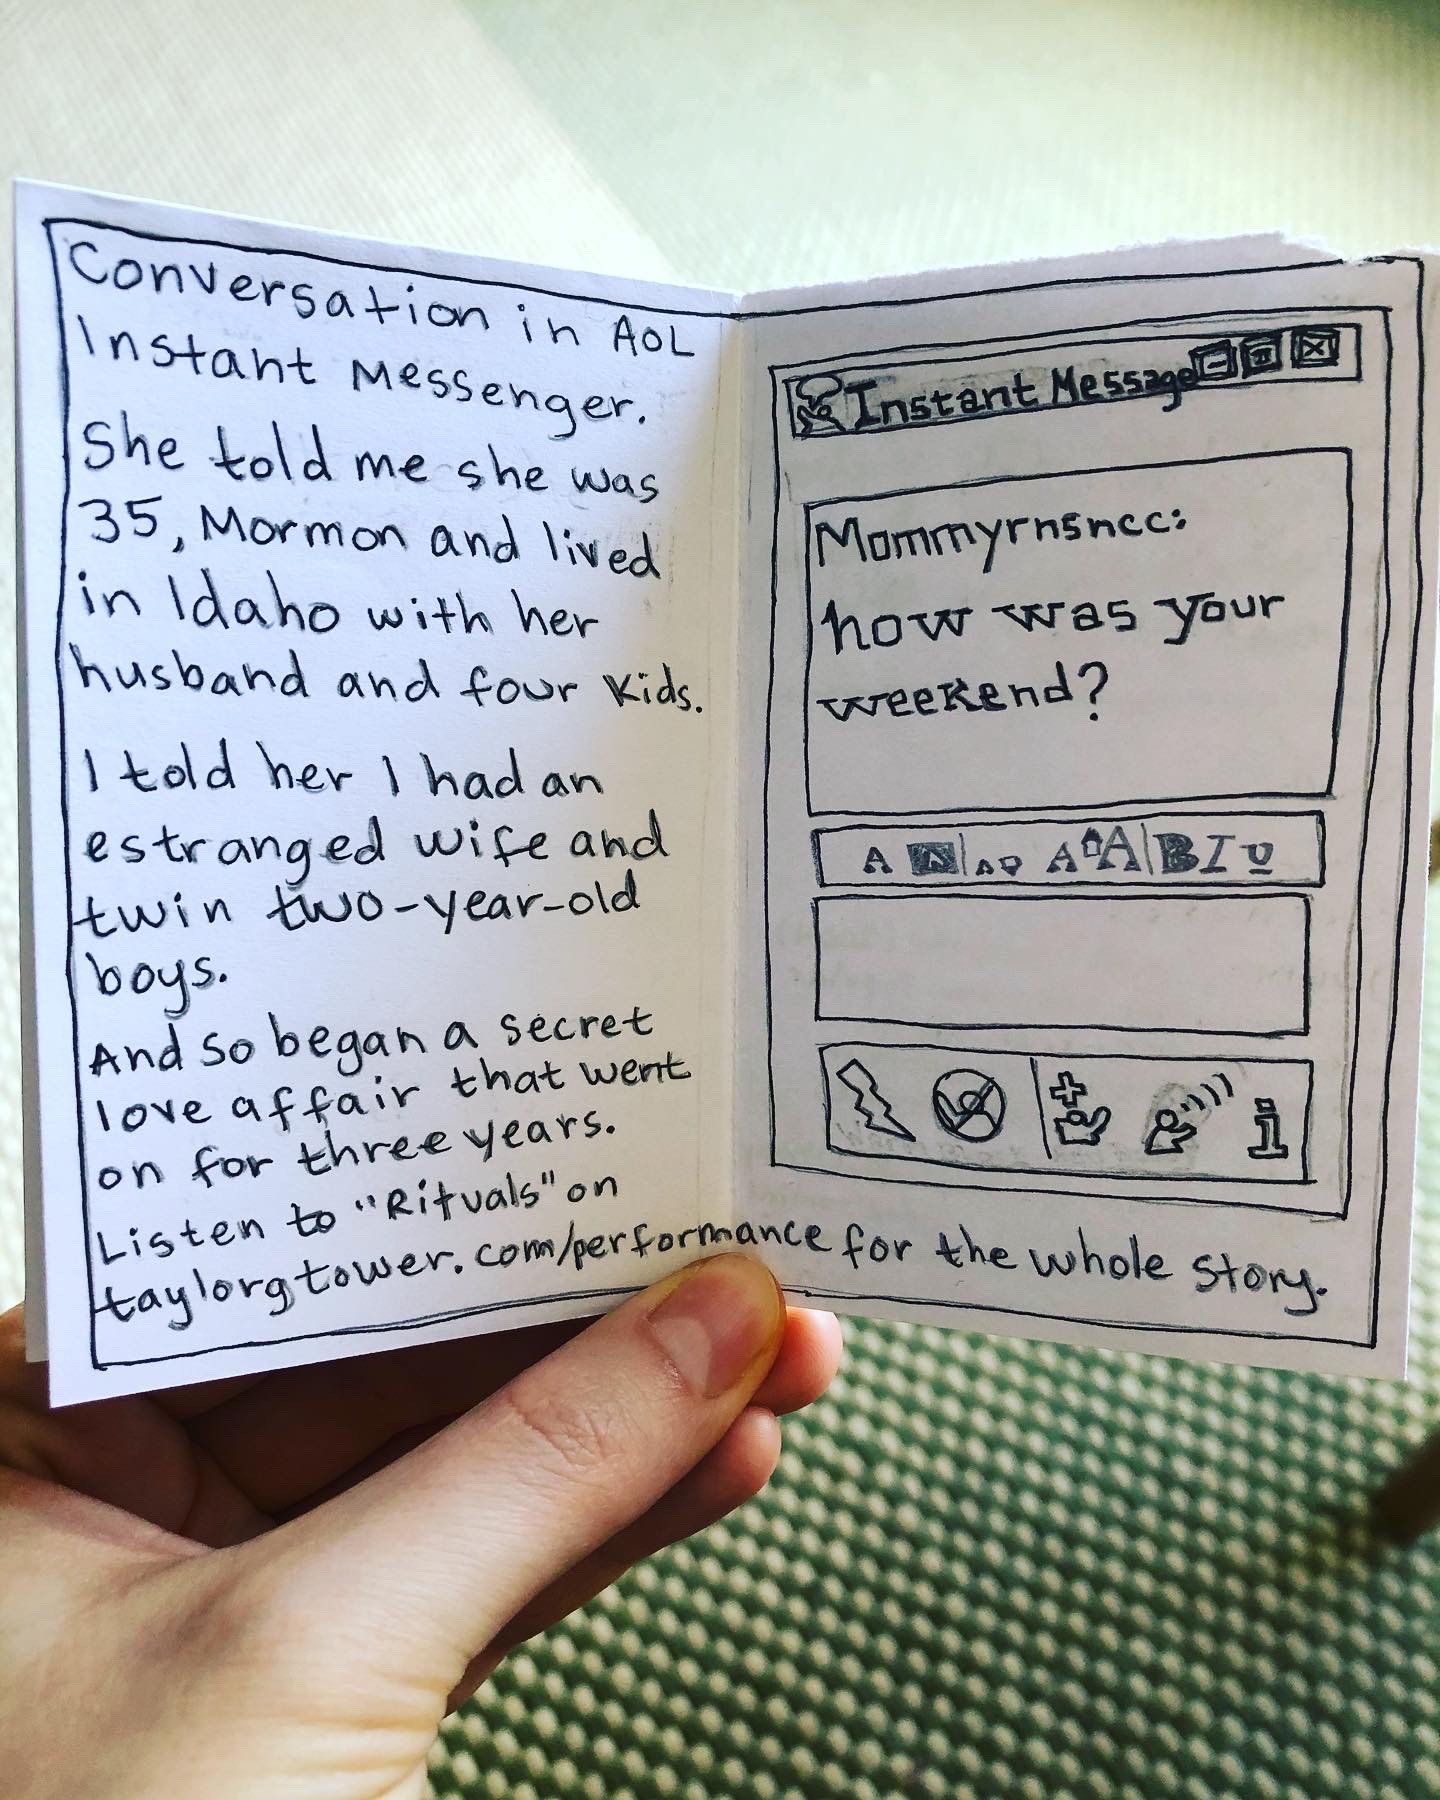 Conversation in AOL
Instant Messenger.
She told me she was
35, Mormon and lived
in Idaho with her
husband and four kids.
I told her I had an
estranged wife and
twin two-year-old
boys.
And so began a secret
love affair that went
on for three years.
Listen to "Rituals" on
taylorgtower.com/performance for the whole story.
Instant Message
Mommyrnsncc:
how was your
weekend?
A A A A A B I U
i